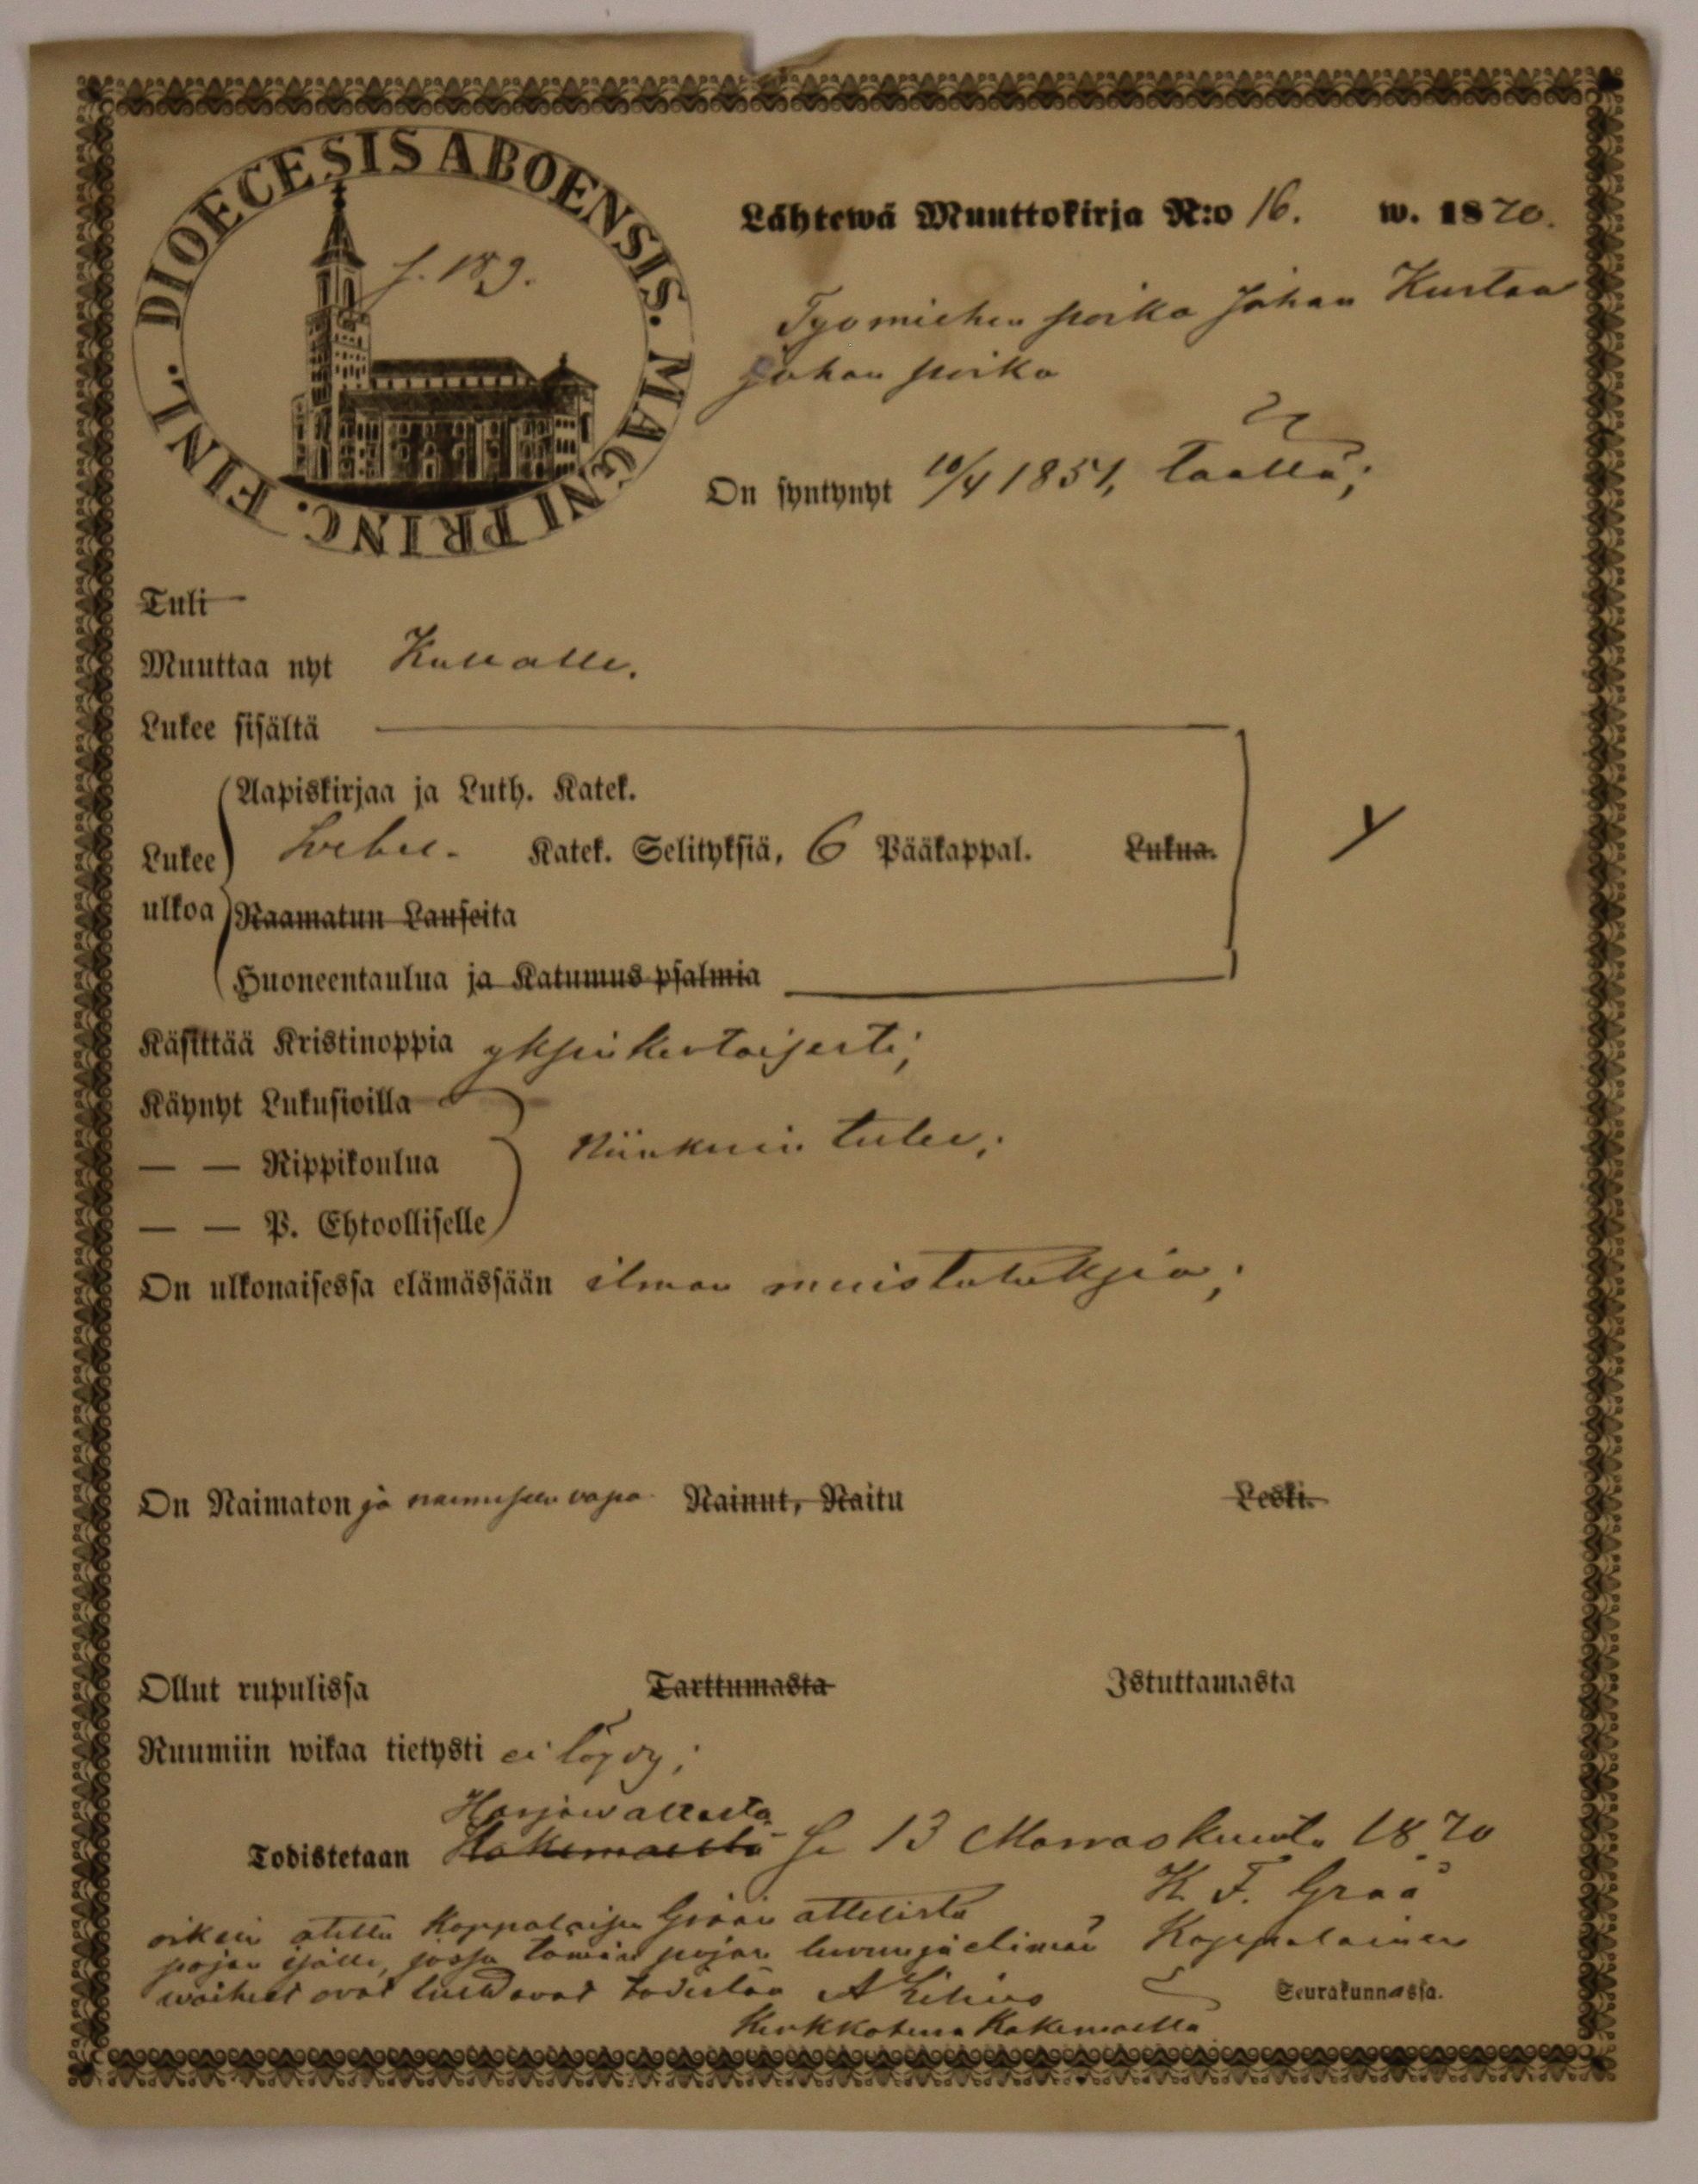 DIOECESIS ABOENSIS. MAGNI PRINC. FINL.
f. 189.
Lähtewä Muuttokirja N:o 16. w. 1870.
Työmiehen poika Johan Kustaa
Johan poika
On syntynyt 10/4 1851, täällä;
Tuli
Muuttaa nyt Kullalle.
Lukee sisältä
Aapiskirjaa ja Luth. Katek.
Lukee Swebel. Katek. Selityksiä, 6 Pääkappal. Lukua.
ulkoa Raamatun Lauseita
Huoneentaulua ja Katumus psalmia
Käsittää Kristinoppia yksinkertaisesti;
Käynyt Lukusioilla
— — Rippikoulua Niinkuin tulee;
— — P. Ehtoolliselle
On ulkonaisessa elämässään ilman muistutuksia;
On Naimaton ja naimiseen vapa Nainut, Naitu Leski.
Ollut rupulissa Tarttumasta Istuttamasta
Ruumiin wikaa tietysti ei löydy;
Harjawallasta
Todistetaan Kokemäeltä se 13 Marraskuuta 1870
K. F. Graå
oikein otettu Kappalaisen Gråån attestista
pojan ijälle, jossa tämän pojan luvun ja elimän Kappalainen
waiheet ovat luettavat todistaa A Lilius
Seurakunnassa.
Kirkkoherra Kokemäellä